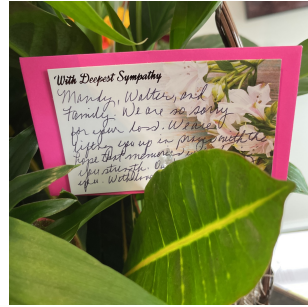 With Deepest Sympathy
Mandy, Walter, and
Family We are so sorry
for your loss. We are
lifting you up in prayer with the
hope that memories
you strength.
you.